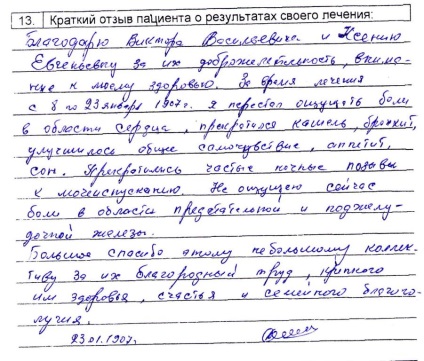 13. Краткий отзыв пациента о результатах своего лечения:
Благодарю Виктора Васильевича и Ксению
Евгеньевну за их доброжелательность, внима-
ние к моему здоровью. За время лечения
с 8 по 23 января 1907г. я перестал ощущать боли
в области сердца, прекратился кашель, бронхит,
улучшилось общее самочувствие, аппетит,
сон. Прекратились частые ночные позывы
к мочеиспусканию. Не ощущаю сейчас
боли в области предстательной и поджелу-
дочной железы.
Большое спасибо этому небольшому коллек-
тиву за их благородный труд, крепкого
им здоровья, счастья и семейного благопо-
лучия.
23.01.1907г.